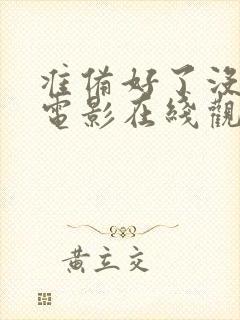 准備好了沒
電影在綫觀
黃立交